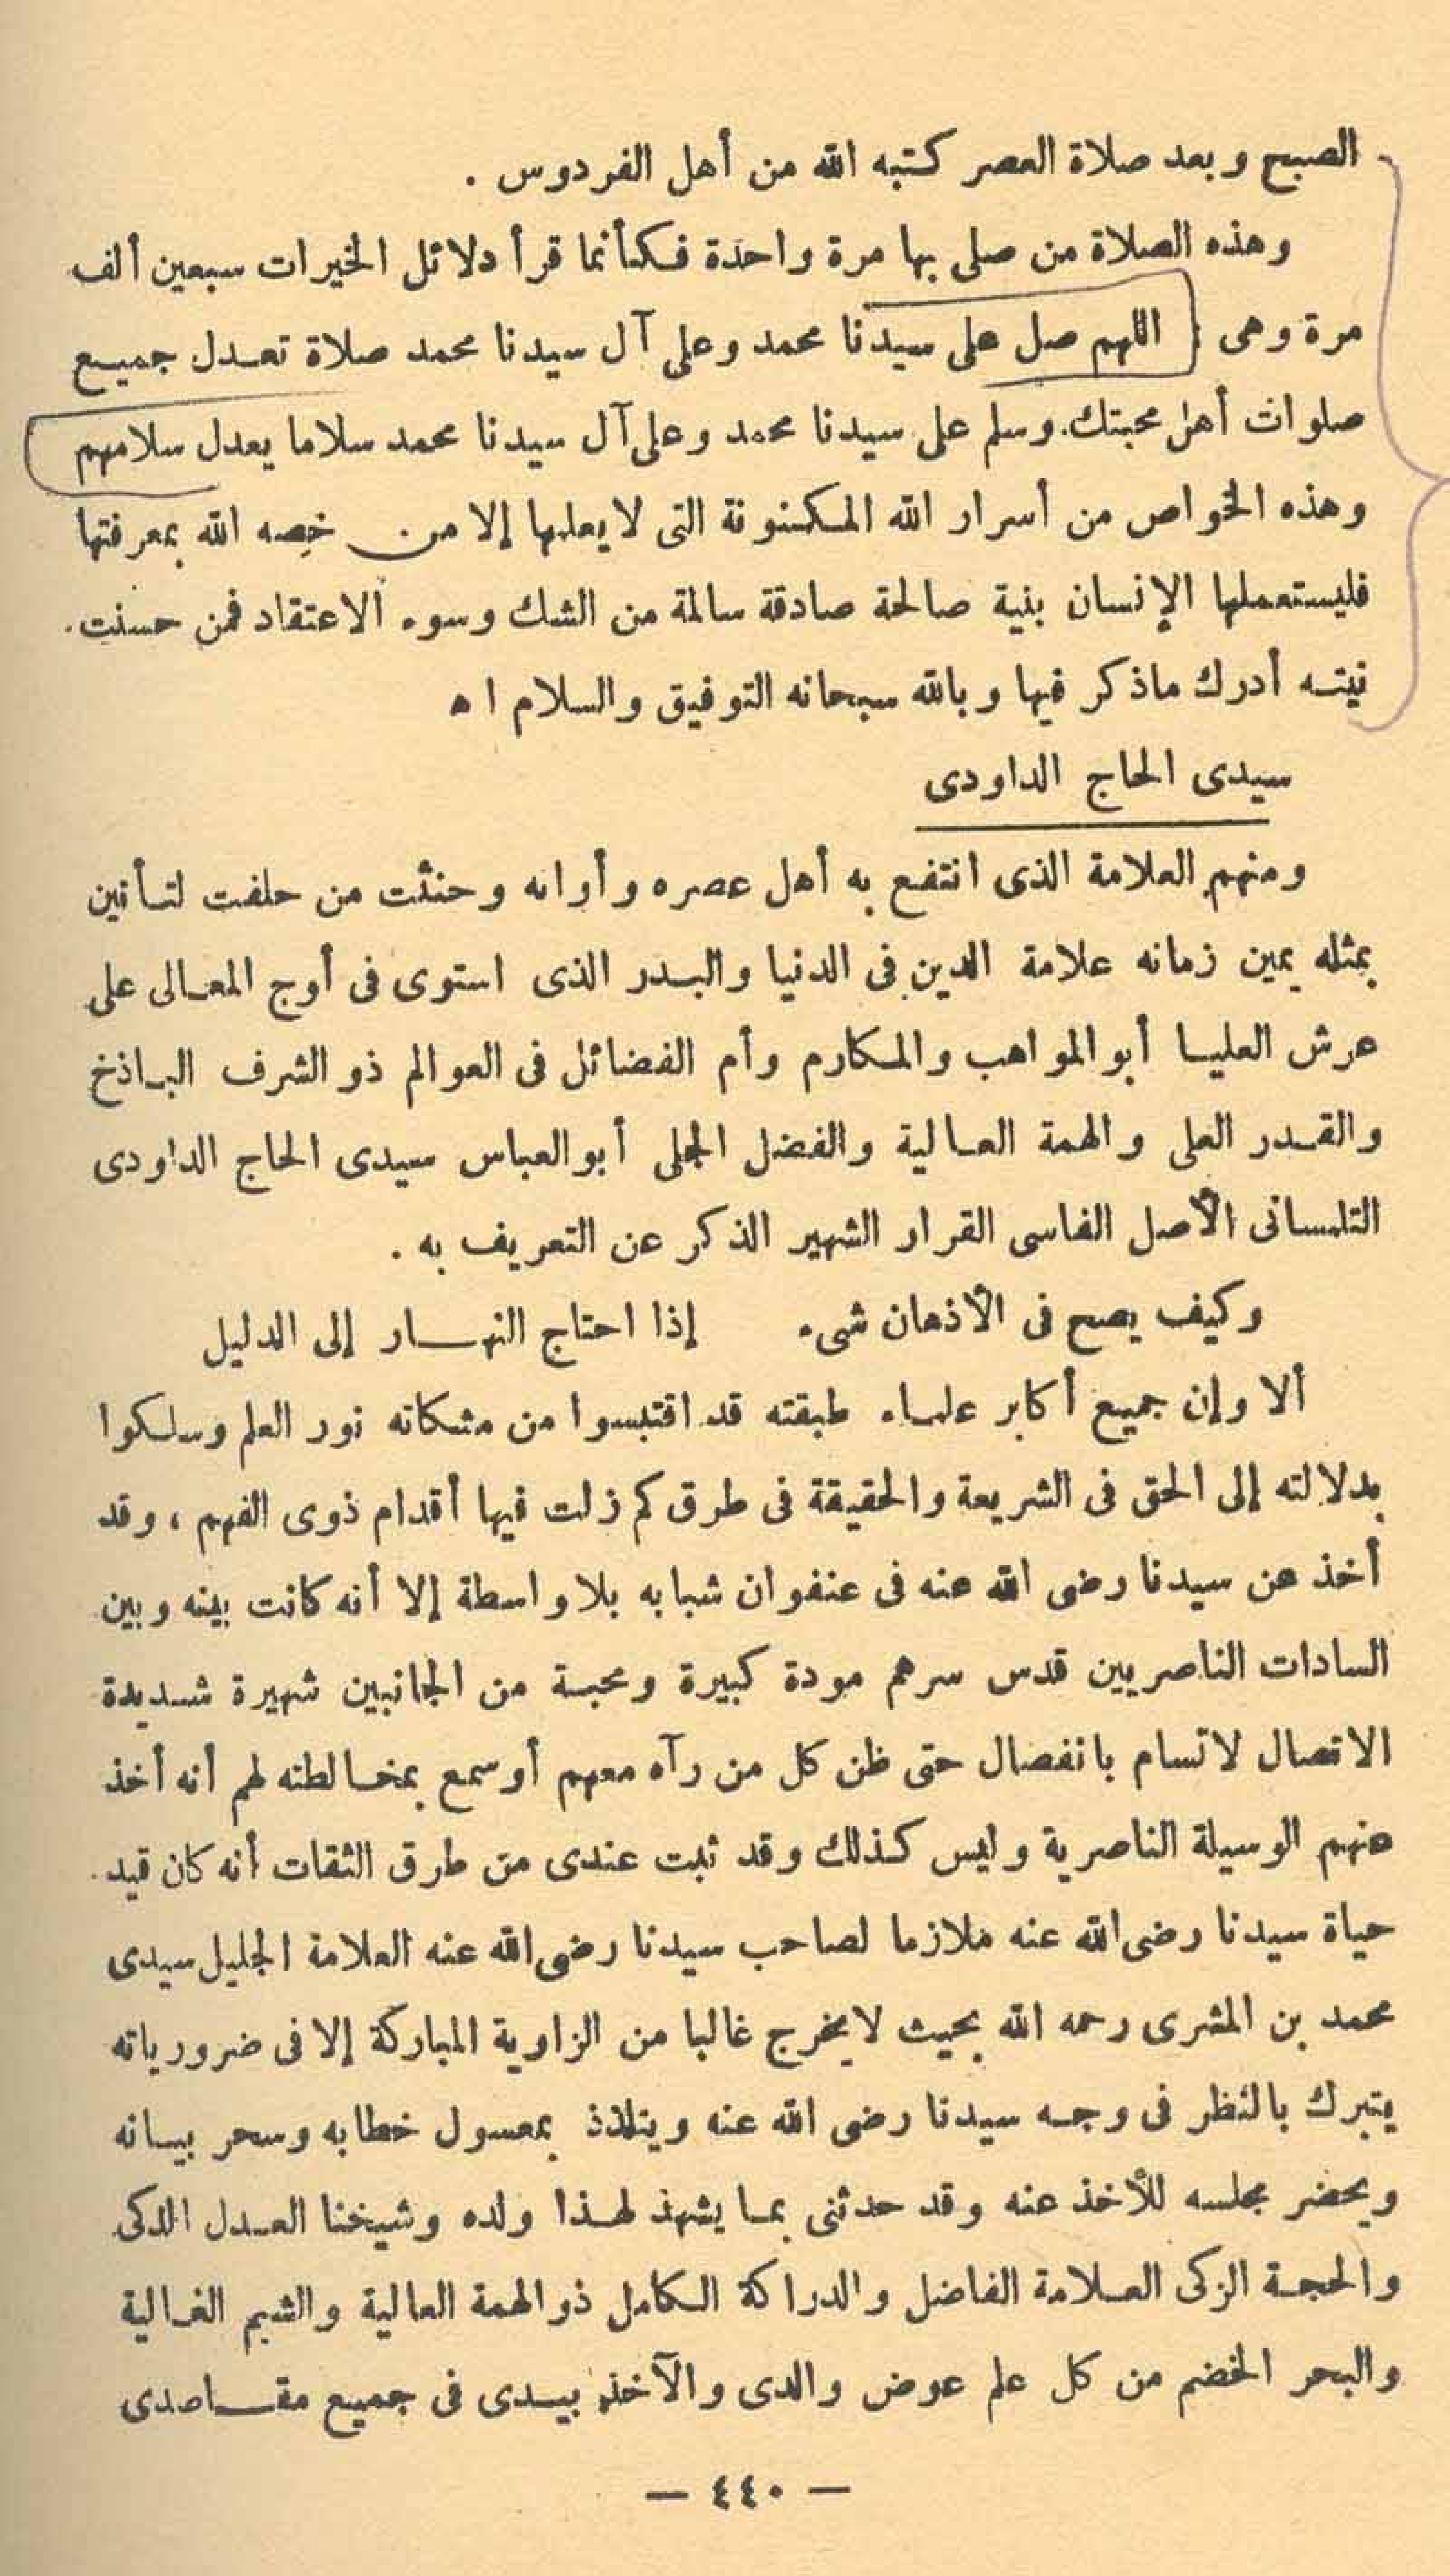 الصبح وبعد صلاة العصر كتبه الله من أهل الفردوس .
وهذه الصلاة من صلى بها مرة واحدة فكأنما قرأ دلائل الخيرات سبعين ألف
مرة وهى : اللهم صل على سيدنا محمد وعلى آل سيدنا محمد صلاة تعدل جميع
صلوات أهل محبتك وسلم على سيدنا محمد وعلى آل سيدنا محمد سلاما يعدل سلامهم
وهذه الخواص من أسرار الله المكنونة التى لايعلمها إلا من خصه الله بمعرفتها
فليستعملها الإنسان بنية صالحة صادقة سالمة من الشك وسوء الاعتقاد فمن حسنت
نيته أدرك ماذكر فيها وبالله سبحانه التوفيق والسلام اه
سيدى الحاج الداودى
ومنهم العلامة الذى انتفع به أهل عصره وأوانه وحنثت من حلفت لتأتين
بمثله يمين زمانه علامة الدين فى الدنيا والبدر الذى استوى فى أوج المعالى على
عرش العليا أبو المواهب والمكارم وأم الفضائل فى العوالم ذو الشرف الباذخ
والقدر العلى والهمة العالية والفضل الجلى أبو العباس سيدى الحاج الداودى
التلمسانى الأصل الفاسى القرار الشهير الذكر عن التعريف به .
وكيف يصح فى الأذهان شىء إذا احتاج النهار إلى الدليل
ألا وإن جميع أكابر علماء طبقته قد اقتبسوا من مشكاته نور العلم وسلكوا
بدلالته إلى الحق فى الشريعة والحقيقة فى طرق كم زلت فيها أقدام ذوى الفهم ، وقد
أخذ عن سيدنا رضى الله عنه فى عنفوان شبابه بلا واسطة إلا أنه كانت بينه وبين
السادات الناصريين قدس سرهم مودة كبيرة ومحبة من الجانبين شهيرة شديدة
الاتصال لاتسام بانفصال حتى ظن كل من رآه معهم أو سمع بمخالطته لهم أنه أخذ
منهم الوسيلة الناصرية وليس كذلك وقد ثبت عندى من طرق الثقات أنه كان قيد
حياة سيدنا رضى الله عنه ملازما لصاحب سيدنا رضى الله عنه العلامة الجليل سيدى
محمد بن المشرى رحمه الله بحيث لايخرج غالبا من الزاوية المباركة إلا فى ضرورياته
يتبرك بالنظر فى وجه سيدنا رضى الله عنه ويتلذذ بمعسول خطابه وسحر بيانه
ويحضر مجلسه للأخذ عنه وقد حدثنى بما يشهد لهذا ولده وشيخنا العدل الذكى
والحجة الزكى العلامة الفاضل والدراكة الكامل ذو الهمة العالية والشيم الغالية
والبحر الخضم من كل علم عوض والدى والآخذ بيدى فى جميع مقاصدى
— ٤٤٠ —